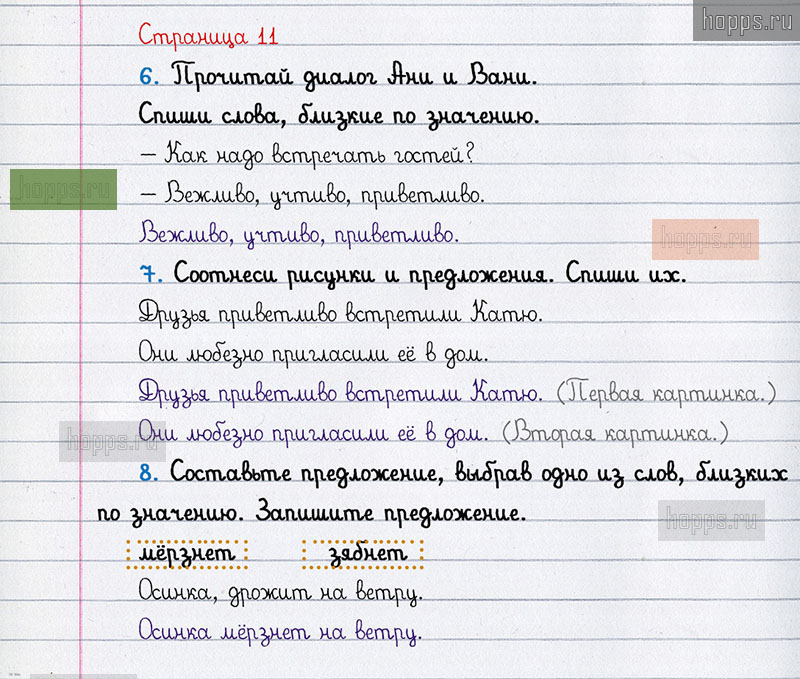 hopps.ru
Страница 11
6. Прочитай диалог Ани и Вани.
Спиши слова, близкие по значению.
– Как надо встречать гостей?
hopps.ru
– Вежливо, учтиво, приветливо.
Вежливо, учтиво, приветливо.
hopps.ru
7. Соотнеси рисунки и предложения. Спиши их.
Друзья приветливо встретили Катю.
Они любезно пригласили её в дом.
Друзья приветливо встретили Катю. (Первая картинка.)
hopps.ru
Они любезно пригласили её в дом. (Вторая картинка.)
8. Составьте предложение, выбрав одно из слов, близких
по значению. Запишите предложение.
hopps.ru
мёрзнет зябнет
Осинка, дрожит на ветру.
Осинка мёрзнет на ветру.